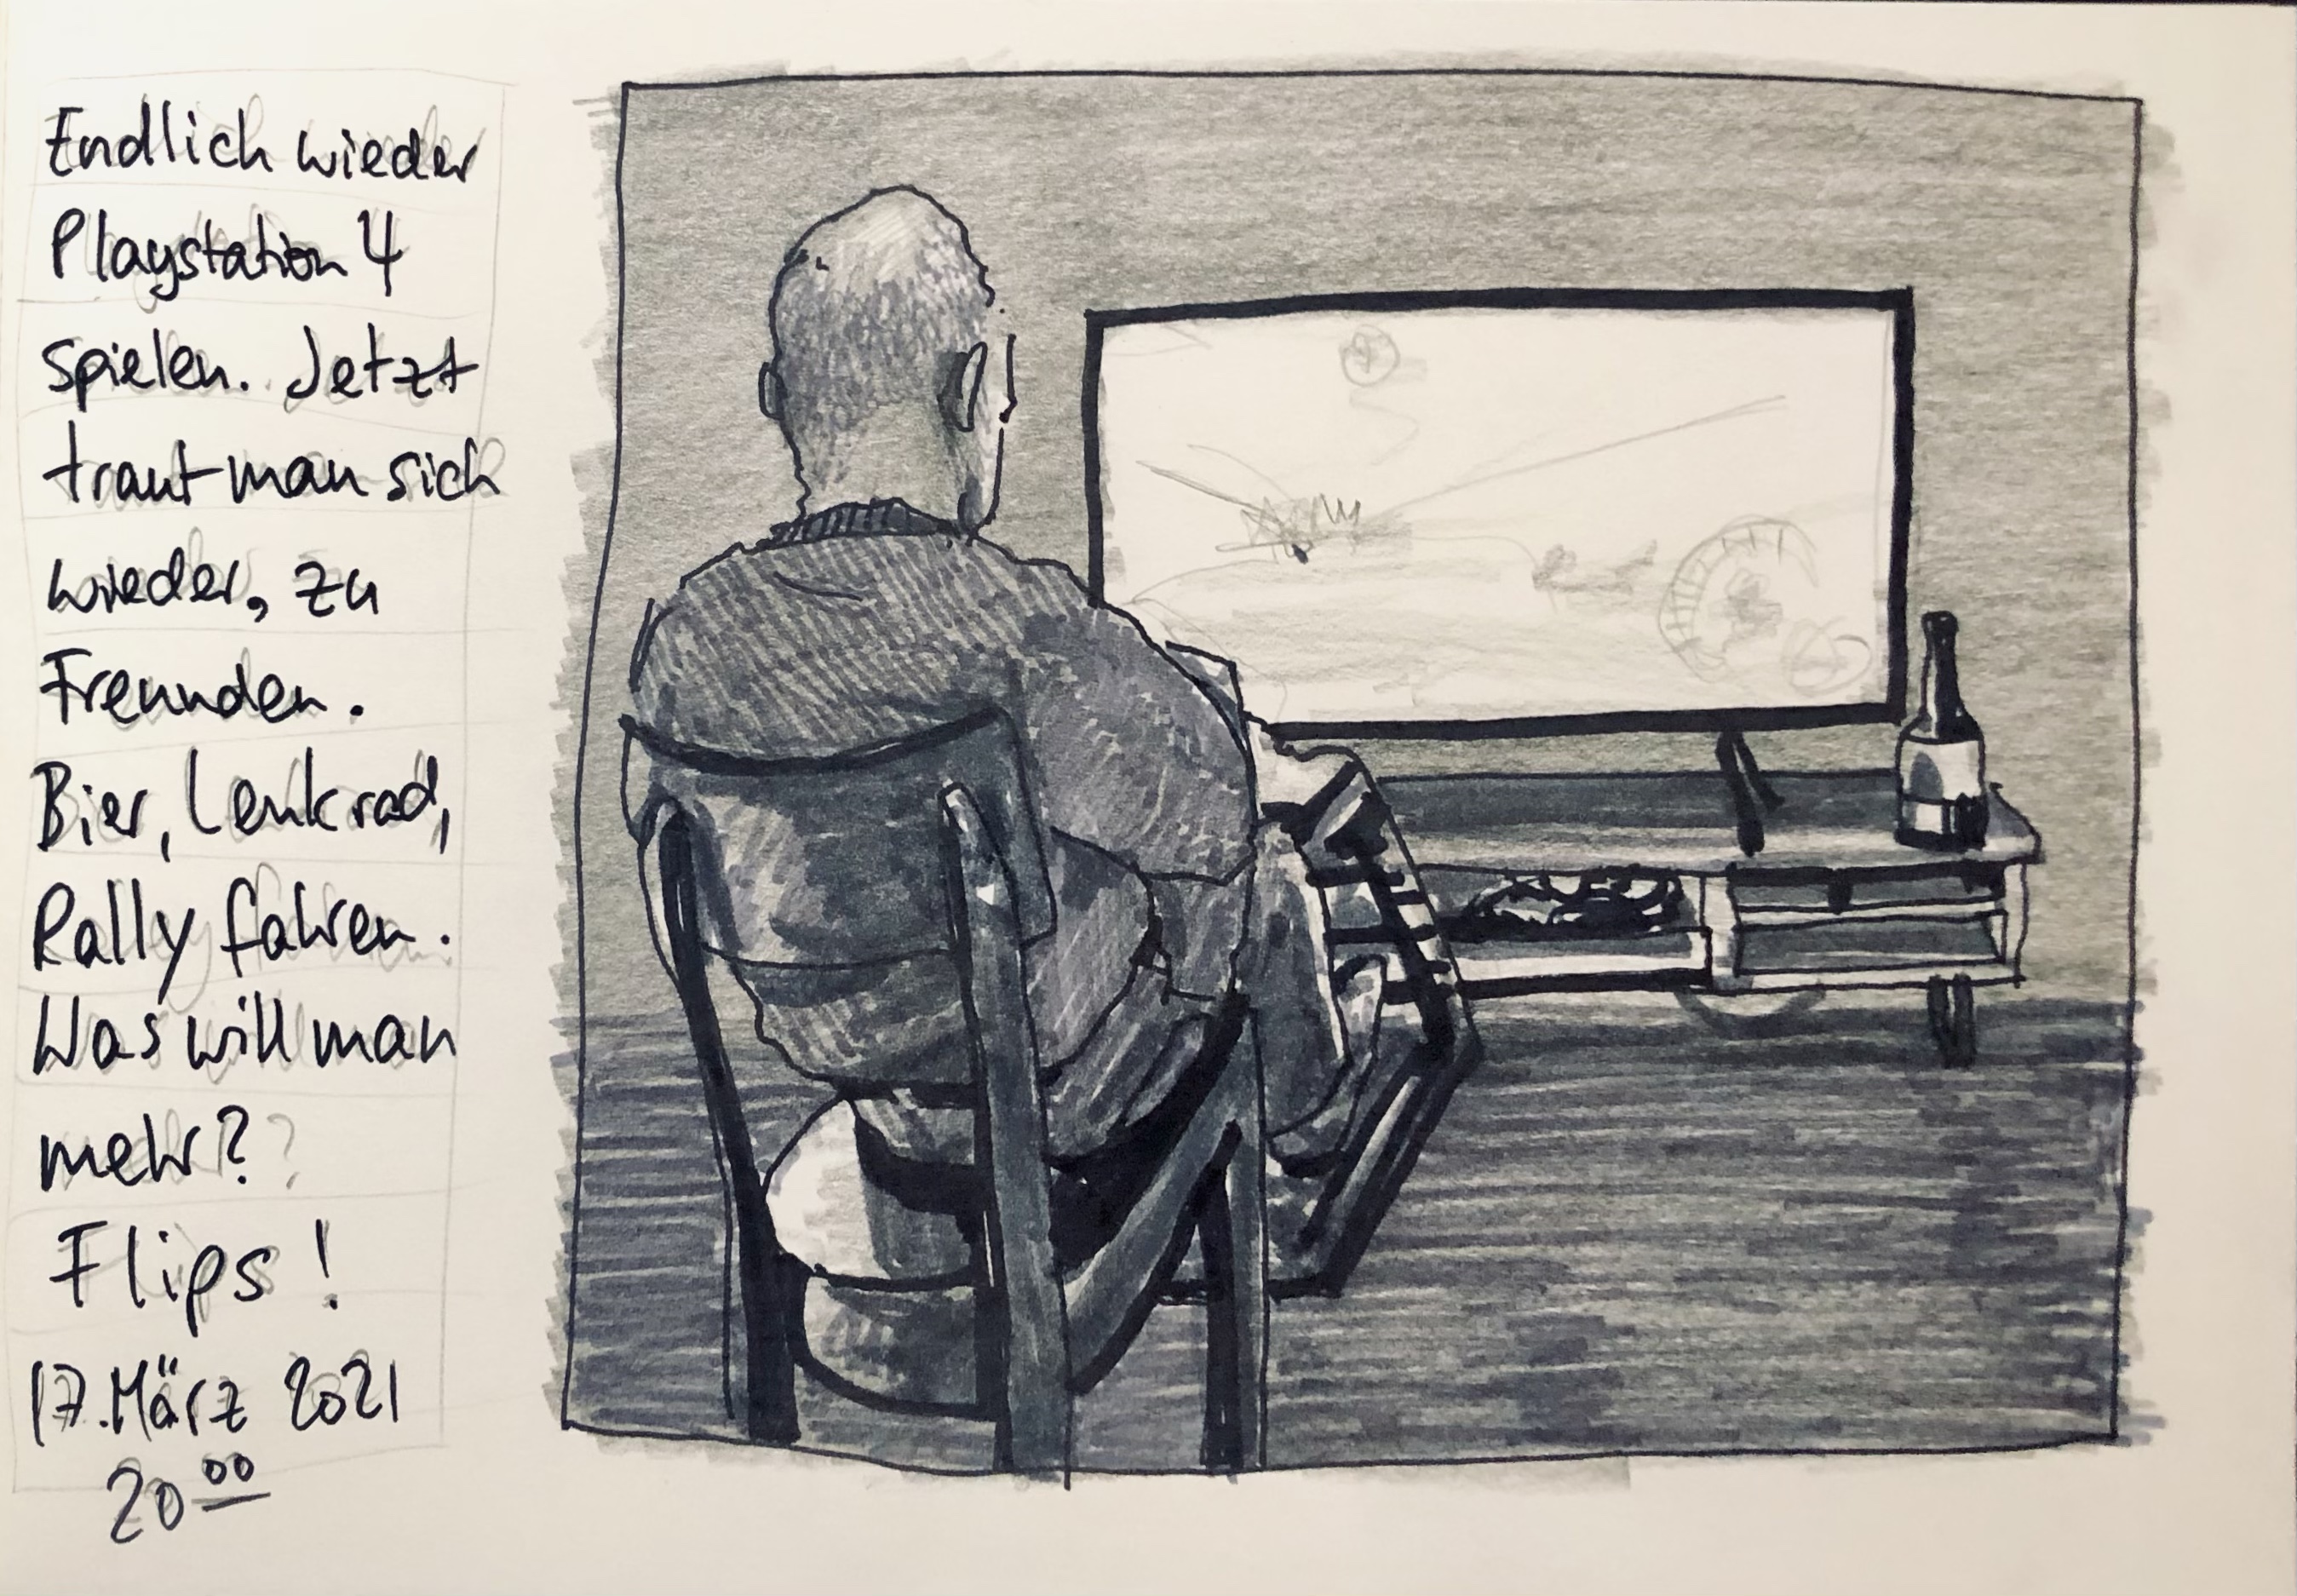 Endlich wieder
Playstation 4
spielen. Jetzt
traut man sich
wieder, zu
Freunden.
Bier, Lenkrad,
Rally fahren.
Was will man
mehr?
Flips!
17. März 2021
20 00